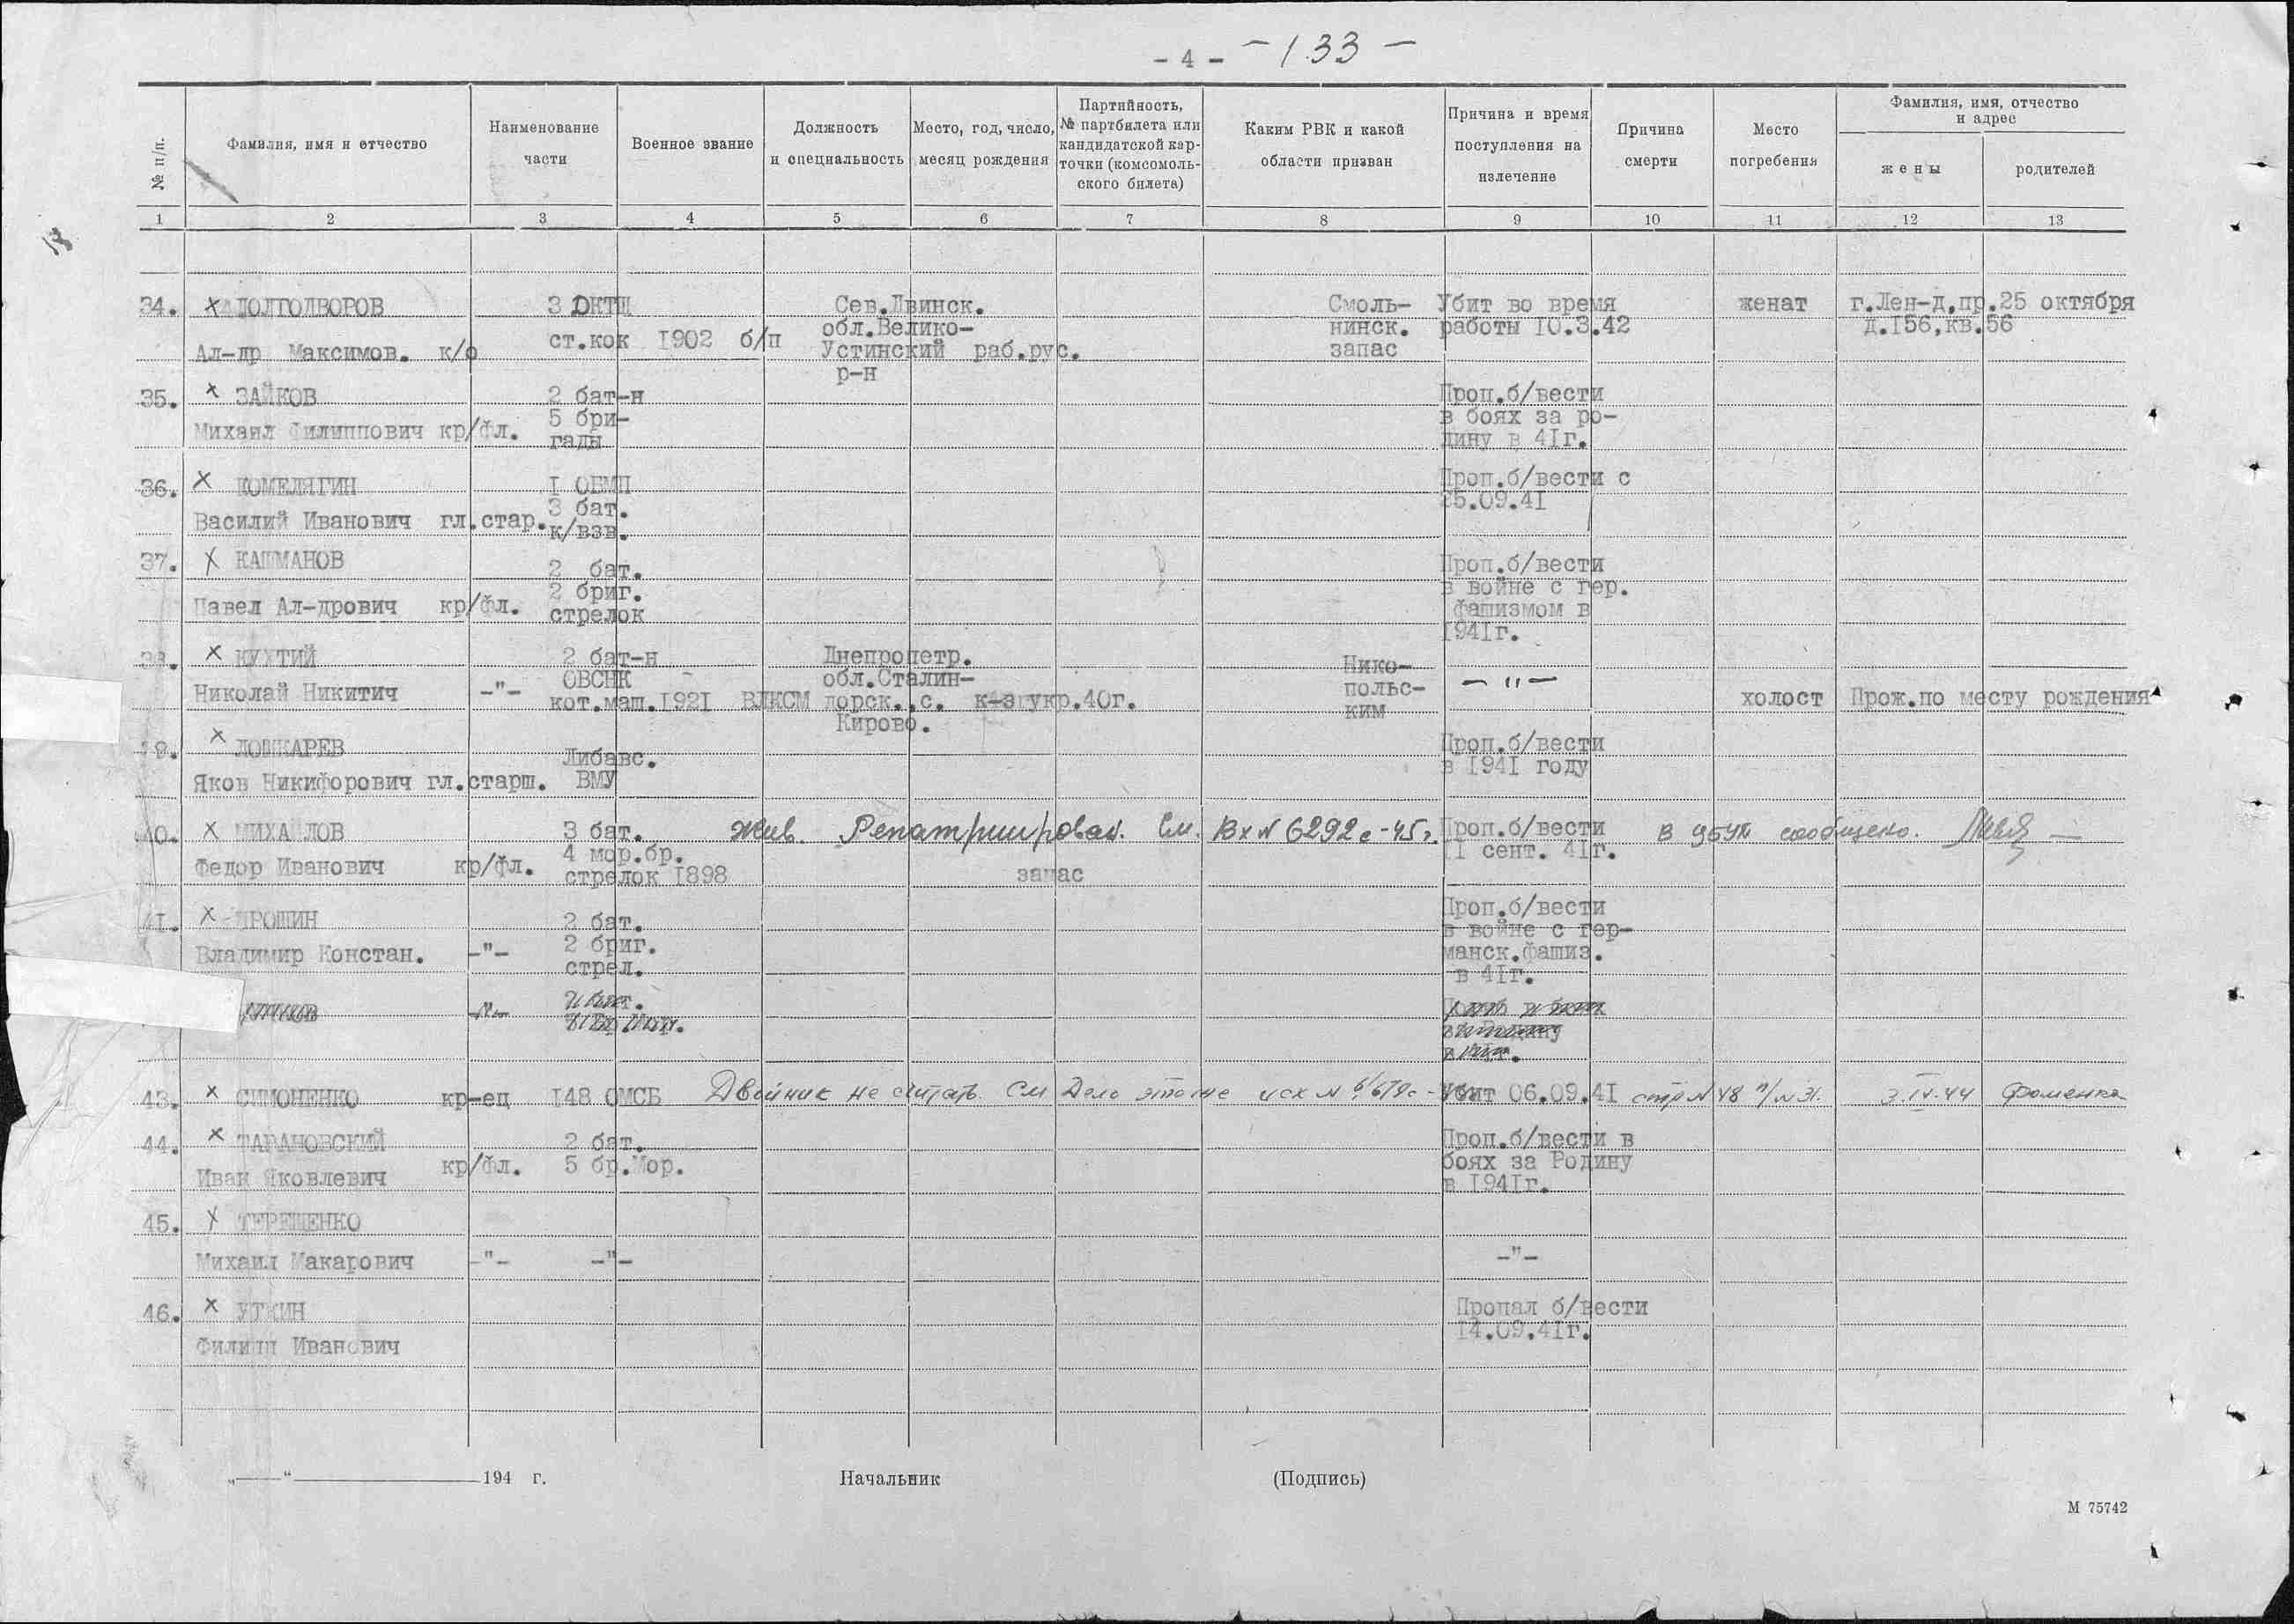 - 4 - - 133 -
№ п/п.
Фамилия, имя и отчество
Наименование части
Военное звание
Должность и специальность
Место, год, число, месяц рождения
Партийность, № партбилета или кандидатской карточки (комсомольского билета)
Каким РВК и какой области призван
Причина и время поступления на излечение
Причина смерти
Место погребения
Фамилия, имя, отчество и адрес
жены
родителей
1 2 3 4 5 6 7 8 9 10 11 12 13
34. х ДОЛГОДВОРОВ 3 ОКТЩ Сев.Двинск. Смоль- Убит во время женат г.Лен-д,пр.25 октября
обл.Велико- нинск. работы 10.3.42 д.156,кв.56
Ал-др Максимов. к/о ст.кок 1902 б/п Устинский раб.рус. запас
р-н
35. х ЗАЙКОВ 2 бат-н Проп.б/вести
5 бри- в боях за ро-
Михаил Филиппович кр/фл. гады дину в 41г.
36. х КОМЕЛЯГИН 1 ОБМП Проп.б/вести с
3 бат. 25.09.41
Василий Иванович гл.стар. к/взв.
37. х КАШМАНОВ 2 бат. Проп.б/вести
2 бриг. в войне с гер.
Павел Ал-дрович кр/фл. стрелок фашизмом в
1941г.
38. х КУХТИЙ 2 бат-н Днепропетр. Нико-
ОВСНК обл.Сталин- польс- -"-
Николай Никитич -"- кот.маш.1921 ВЛКСМ дорск.,с. к-з укр.40г. ким холост Прож.по месту рождения
Кирово.
39. х ЛОШКАРЕВ Либавс. Проп.б/вести
Яков Никифорович гл.старш. ВМУ в 1941 году
40. х МИХАЙЛОВ 3 бат. Жив. Репатриирован. См. Вх № 6292с-45г. Проп.б/вести В УБУК сообщено.
4 мор.бр. 11 сент. 41г.
Федор Иванович кр/фл. стрелок 1898 запас
41. х ПРОШИН 2 бат. Проп.б/вести
2 бриг. в войне с гер-
Владимир Констан. -"- стрел. манск.фашиз.
в 41г.
-"-
43. х СИМОНЕНКО кр-ец 148 ОМСБ Двойник не считать. См Дело этоже исх № Убит 06.09.41 стр № 48 п/№ 31. 3.IV.44 Фоменко
44. х ТАРАНОВСКИЙ 2 бат. Проп.б/вести в
кр/фл. 5 бр.Мор. боях за Родину
Иван Яковлевич в 1941г.
45. х ТЕРЕЩЕНКО
Михаил Макарович -"- -"- -"-
46. х УТКИН Пропал б/вести
14.09.41г.
Филипп Иванович
„——“ ———— 194 г. Начальник (Подпись)
М 75742